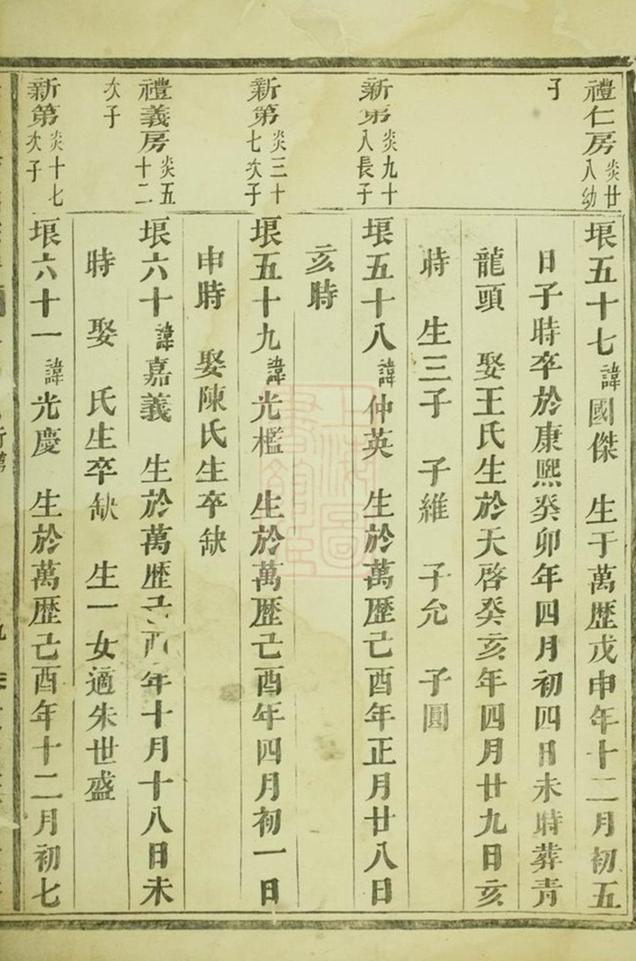 禮仁房炎廿八幼
子
垠五十七諱國傑 生于萬歷戊申年十二月初五
日子時卒於康熙癸卯年四月初四日未時葬青
龍頭 娶王氏生於天啓癸亥年四月廿九日亥
時 生三子 子維 子允 子圓
新第炎九十八長子
垠五十八諱仲英 生於萬歷己酉年正月廿八日
亥時
新第炎三十七次子
垠五十九諱光檻 生於萬歷己酉年四月初一日
申時 娶陳氏生卒缺
禮義房炎五十二
次子
垠六十諱嘉義 生於萬歷己酉年十月十八日未
時 娶 氏生卒缺 生一女適朱世盛
新第炎十七次子
垠六十一諱光慶 生於萬歷己酉年十二月初七